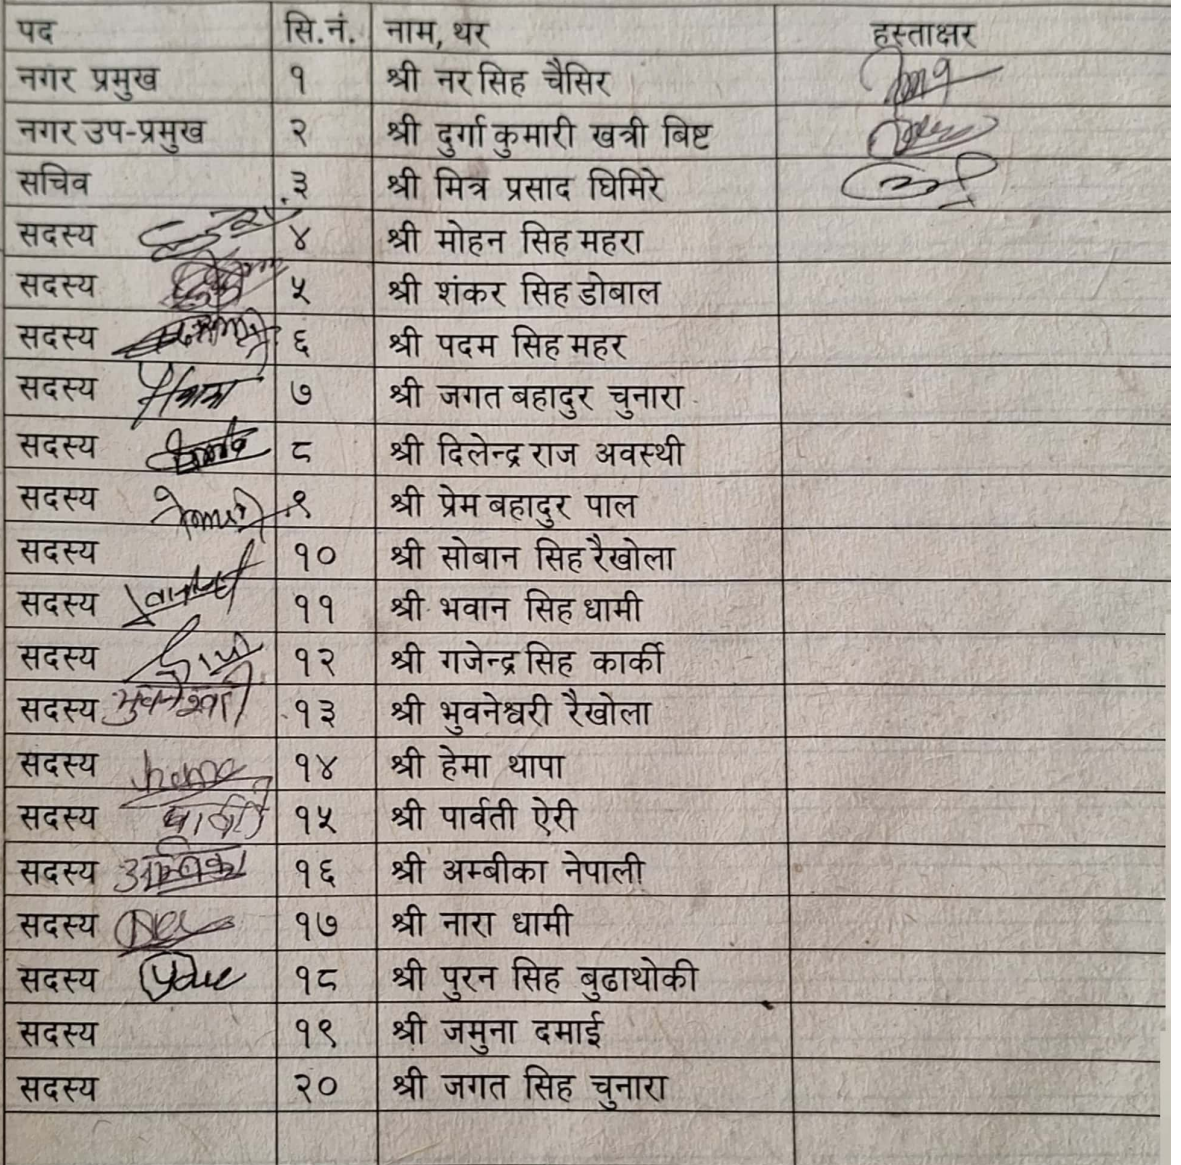 पद सि.नं. नाम, थर हस्ताक्षर
नगर प्रमुख १ श्री नर सिह चैसिर
नगर उप-प्रमुख २ श्री दुर्गा कुमारी खत्री बिष्ट
सचिव ३ श्री मित्र प्रसाद घिमिरे
सदस्य ४ श्री मोहन सिह महरा
सदस्य ५ श्री शंकर सिह डोबाल
सदस्य ६ श्री पदम सिह महर
सदस्य ७ श्री जगत बहादुर चुनारा
सदस्य ८ श्री दिलेन्द्र राज अवस्थी
सदस्य ९ श्री प्रेम बहादुर पाल
सदस्य १० श्री सोबान सिह रैखोला
सदस्य ११ श्री भवान सिह धामी
सदस्य १२ श्री गजेन्द्र सिह कार्की
सदस्य १३ श्री भुवनेश्वरी रैखोला
सदस्य hema १४ श्री हेमा थापा
सदस्य १५ श्री पार्वती ऐरी
सदस्य अम्बिका १६ श्री अम्बीका नेपाली
सदस्य १७ श्री नारा धामी
सदस्य १८ श्री पुरन सिह बुढाथोकी
सदस्य १९ श्री जमुना दमाई
सदस्य २० श्री जगत सिह चुनारा